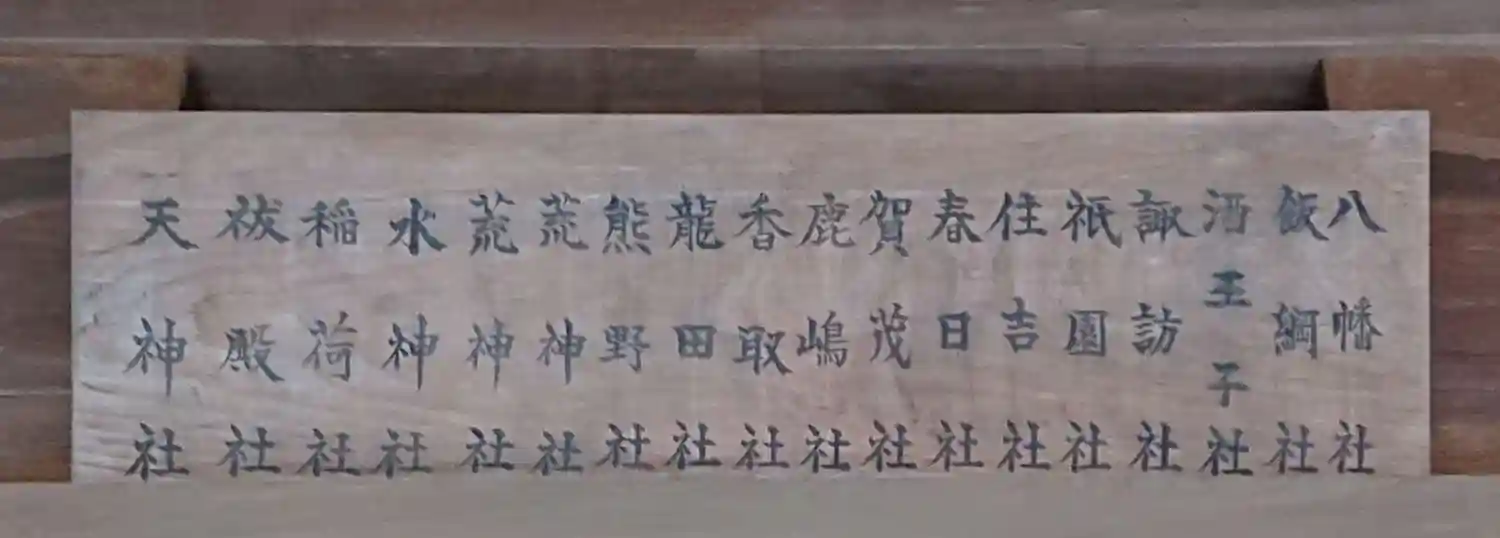 八幡社
飯綱社
酒王子社
諏訪社
祇園社
住吉社
春日社
賀茂社
鹿嶋社
香取社
龍田社
熊野社
荒神社
荒神社
水神社
稲荷社
祓殿社
天神社